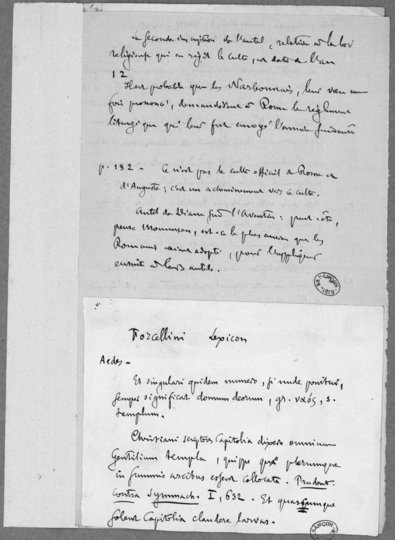 La seconde inscription de l'autel, relative à la loi
religieuse qui en régit le culte, est datée de l'an
12
Il est probable que les Narbonnais, leur vœu une
fois prononcé, demandèrent à Rome le règlement
liturgique qui leur fut envoyé l'année suivante
p. 182 - Ce n'est pas le culte officiel de Rome et
d'Auguste; c'est un acheminement vers ce culte.
Autel de Diane sur l'Aventin : peut-être,
pense Mommsen, est-ce le plus ancien que les
Romains aient adopté, pour l'appliquer
ensuite à leurs autels.
Forcellini Lexicon
Aedes -
Et singulari quidem numero, si nude ponitur,
semper significat domum deorum, gr. ναός, s.
templum.
Christiani scriptores Capitolia dixere omnium
Gentilium templa, quippe quæ plerumque
in summis arcibus essent collocata. Prudent.
contra Symmach. I, 632. Et quascumque
solent Capitolia claudere larvas.